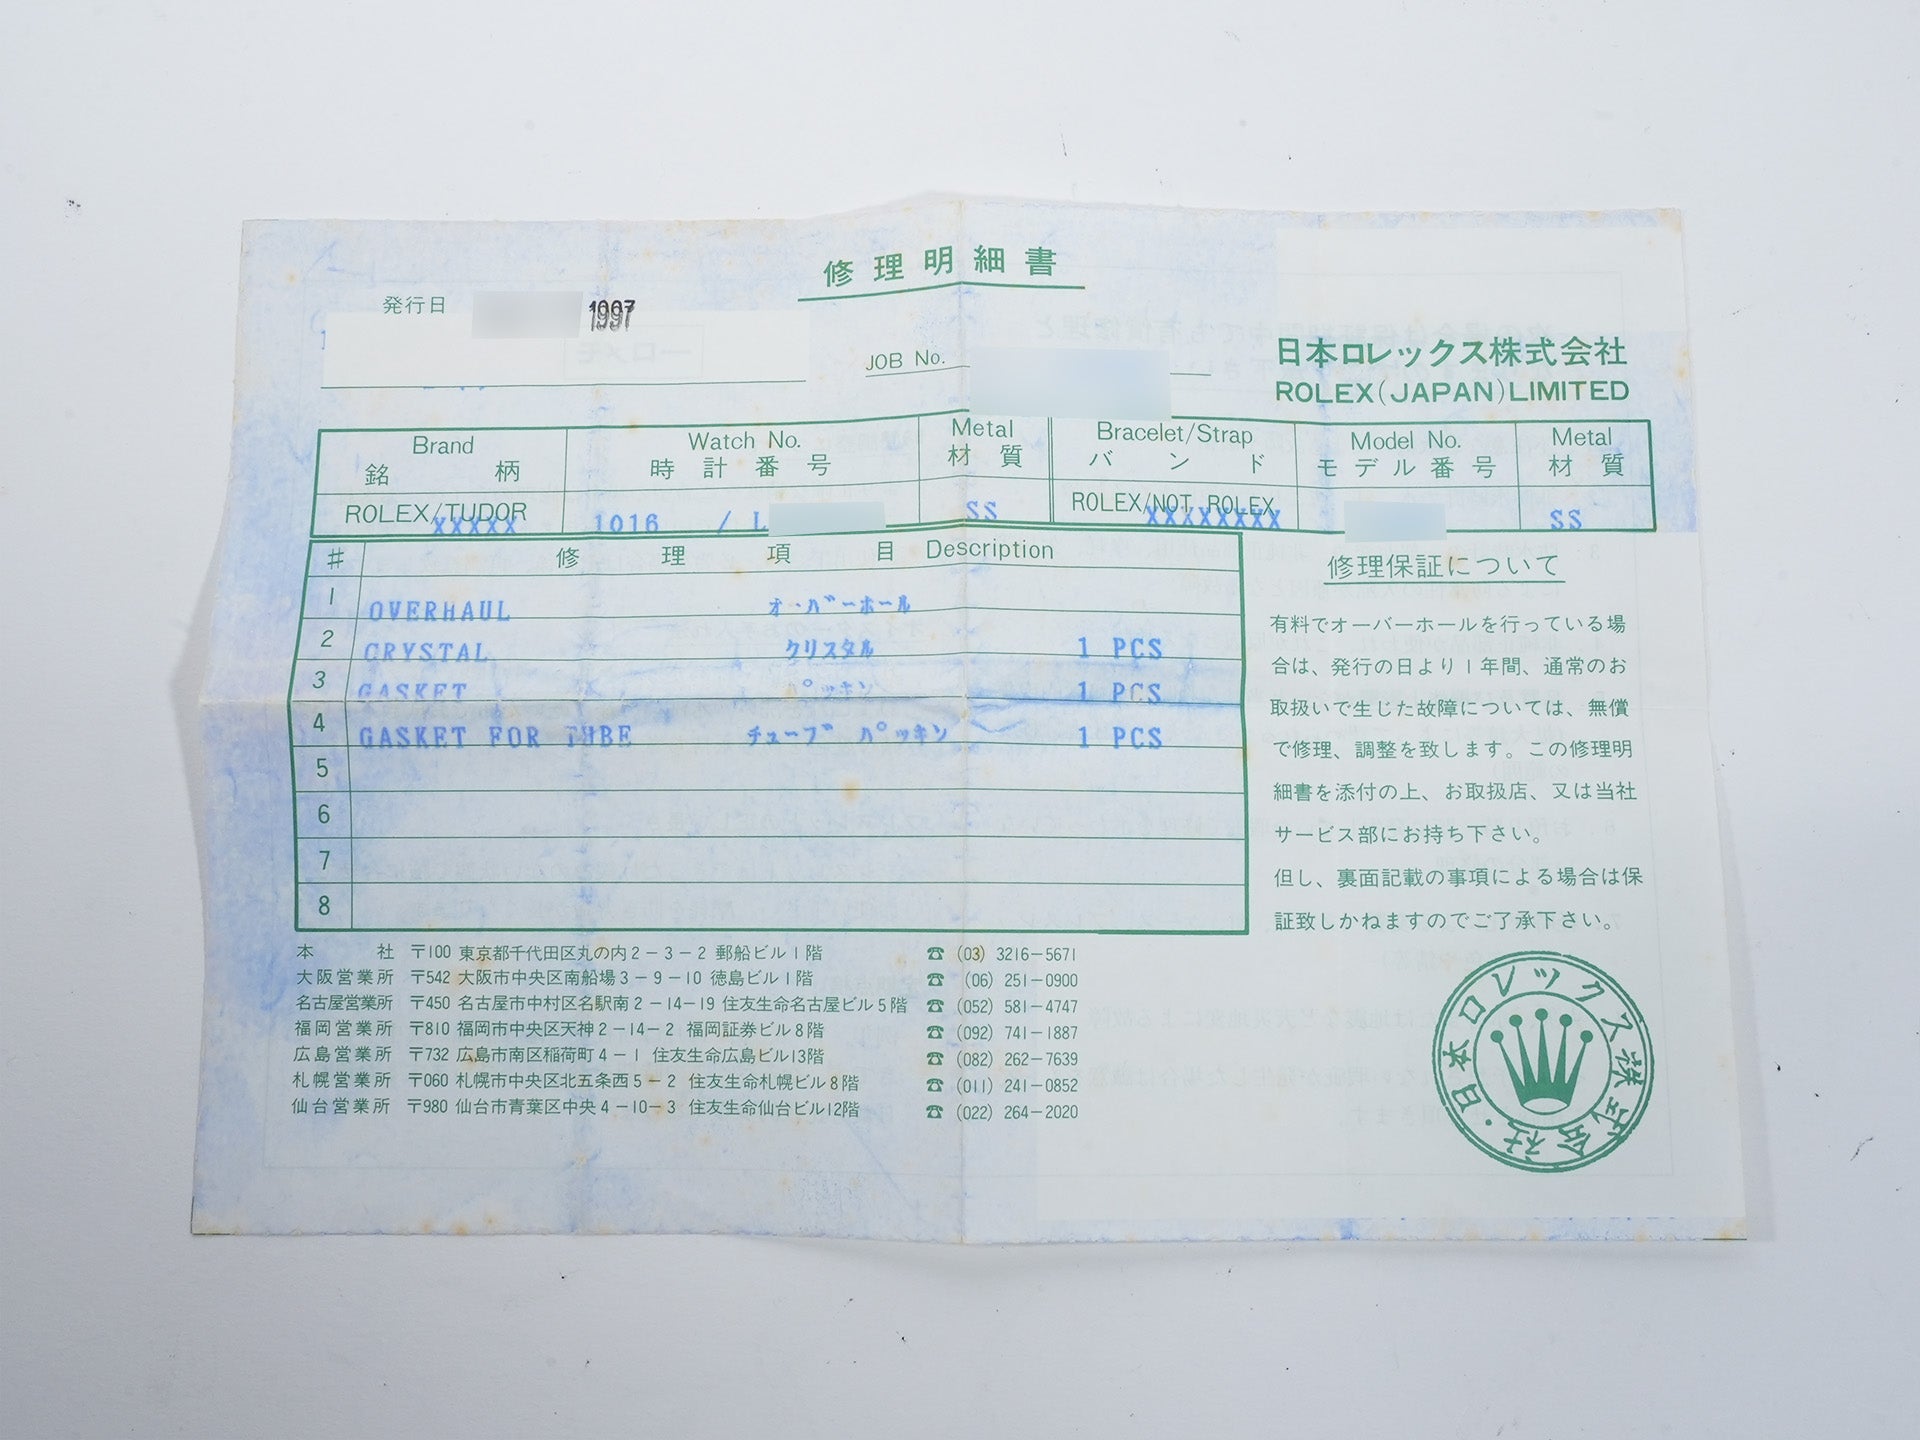 修理明細書
発行日 1997
JOB No.
日本ロレックス株式会社
ROLEX(JAPAN)LIMITED
Brand Watch No. Metal Bracelet/Strap Model No. Metal
銘柄 時計番号 材質 バンド モデル番号 材質
ROLEX/TUDOR 1016 / L SS ROLEX/NOT ROLEX SS
XXXXX XXXXXXXX
# 修理項目 Description
1 OVERHAUL オーバーホール
2 CRYSTAL クリスタル 1 PCS
3 GASKET パッキン 1 PCS
4 GASKET FOR TUBE チューブ パッキン 1 PCS
5
6
7
8
修理保証について
有料でオーバーホールを行っている場
合は、発行の日より1年間、通常のお
取扱いで生じた故障については、無償
で修理、調整を致します。この修理明
細書を添付の上、お取扱店、又は当社
サービス部にお持ち下さい。
但し、裏面記載の事項による場合は保
証致しかねますのでご了承下さい。
本社 〒100 東京都千代田区丸の内2-3-2 郵船ビル1階 ☎ (03) 3216-5671
大阪営業所 〒542 大阪市中央区南船場3-9-10 徳島ビル1階 ☎ (06) 251-0900
名古屋営業所 〒450 名古屋市中村区名駅南2-14-19 住友生命名古屋ビル5階 ☎ (052) 581-4747
福岡営業所 〒810 福岡市中央区天神2-14-2 福岡証券ビル8階 ☎ (092) 741-1887
広島営業所 〒732 広島市南区稲荷町4-1 住友生命広島ビル13階 ☎ (082) 262-7639
札幌営業所 〒060 札幌市中央区北五条西5-2 住友生命札幌ビル8階 ☎ (011) 241-0852
仙台営業所 〒980 仙台市青葉区中央4-10-3 住友生命仙台ビル12階 ☎ (022) 264-2020
日本ロレックス株式会社・